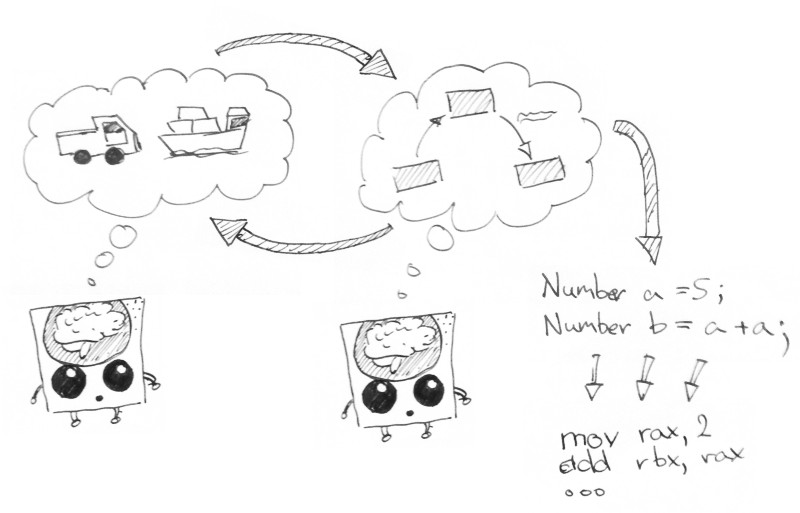 Number a = 5;
Number b = a + a;
mov rax, 2
add rbx, rax
...